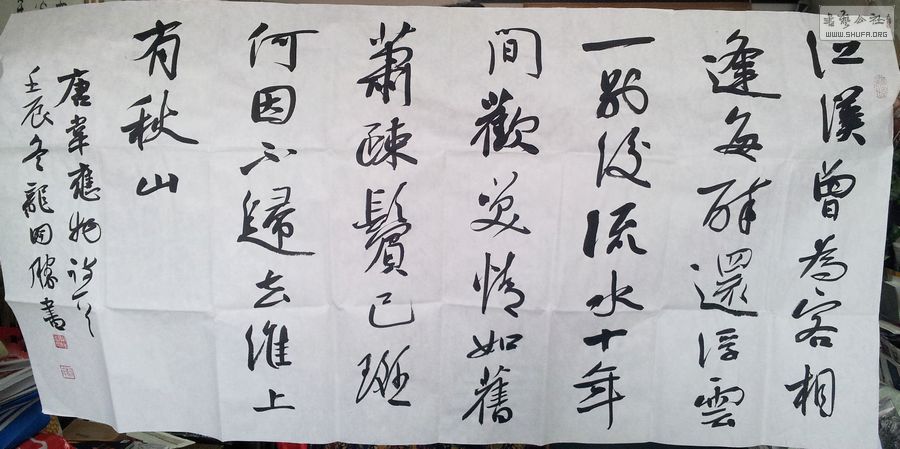 江漢曾為客相
逢每醉還浮雲
一別後流水十年
間歡笑情如舊
蕭疎鬢已斑
何因不歸去淮上
有秋山
唐韋應物詩一首
壬辰冬龍国勝書
書藝公社
WWW.SHUFA.ORG